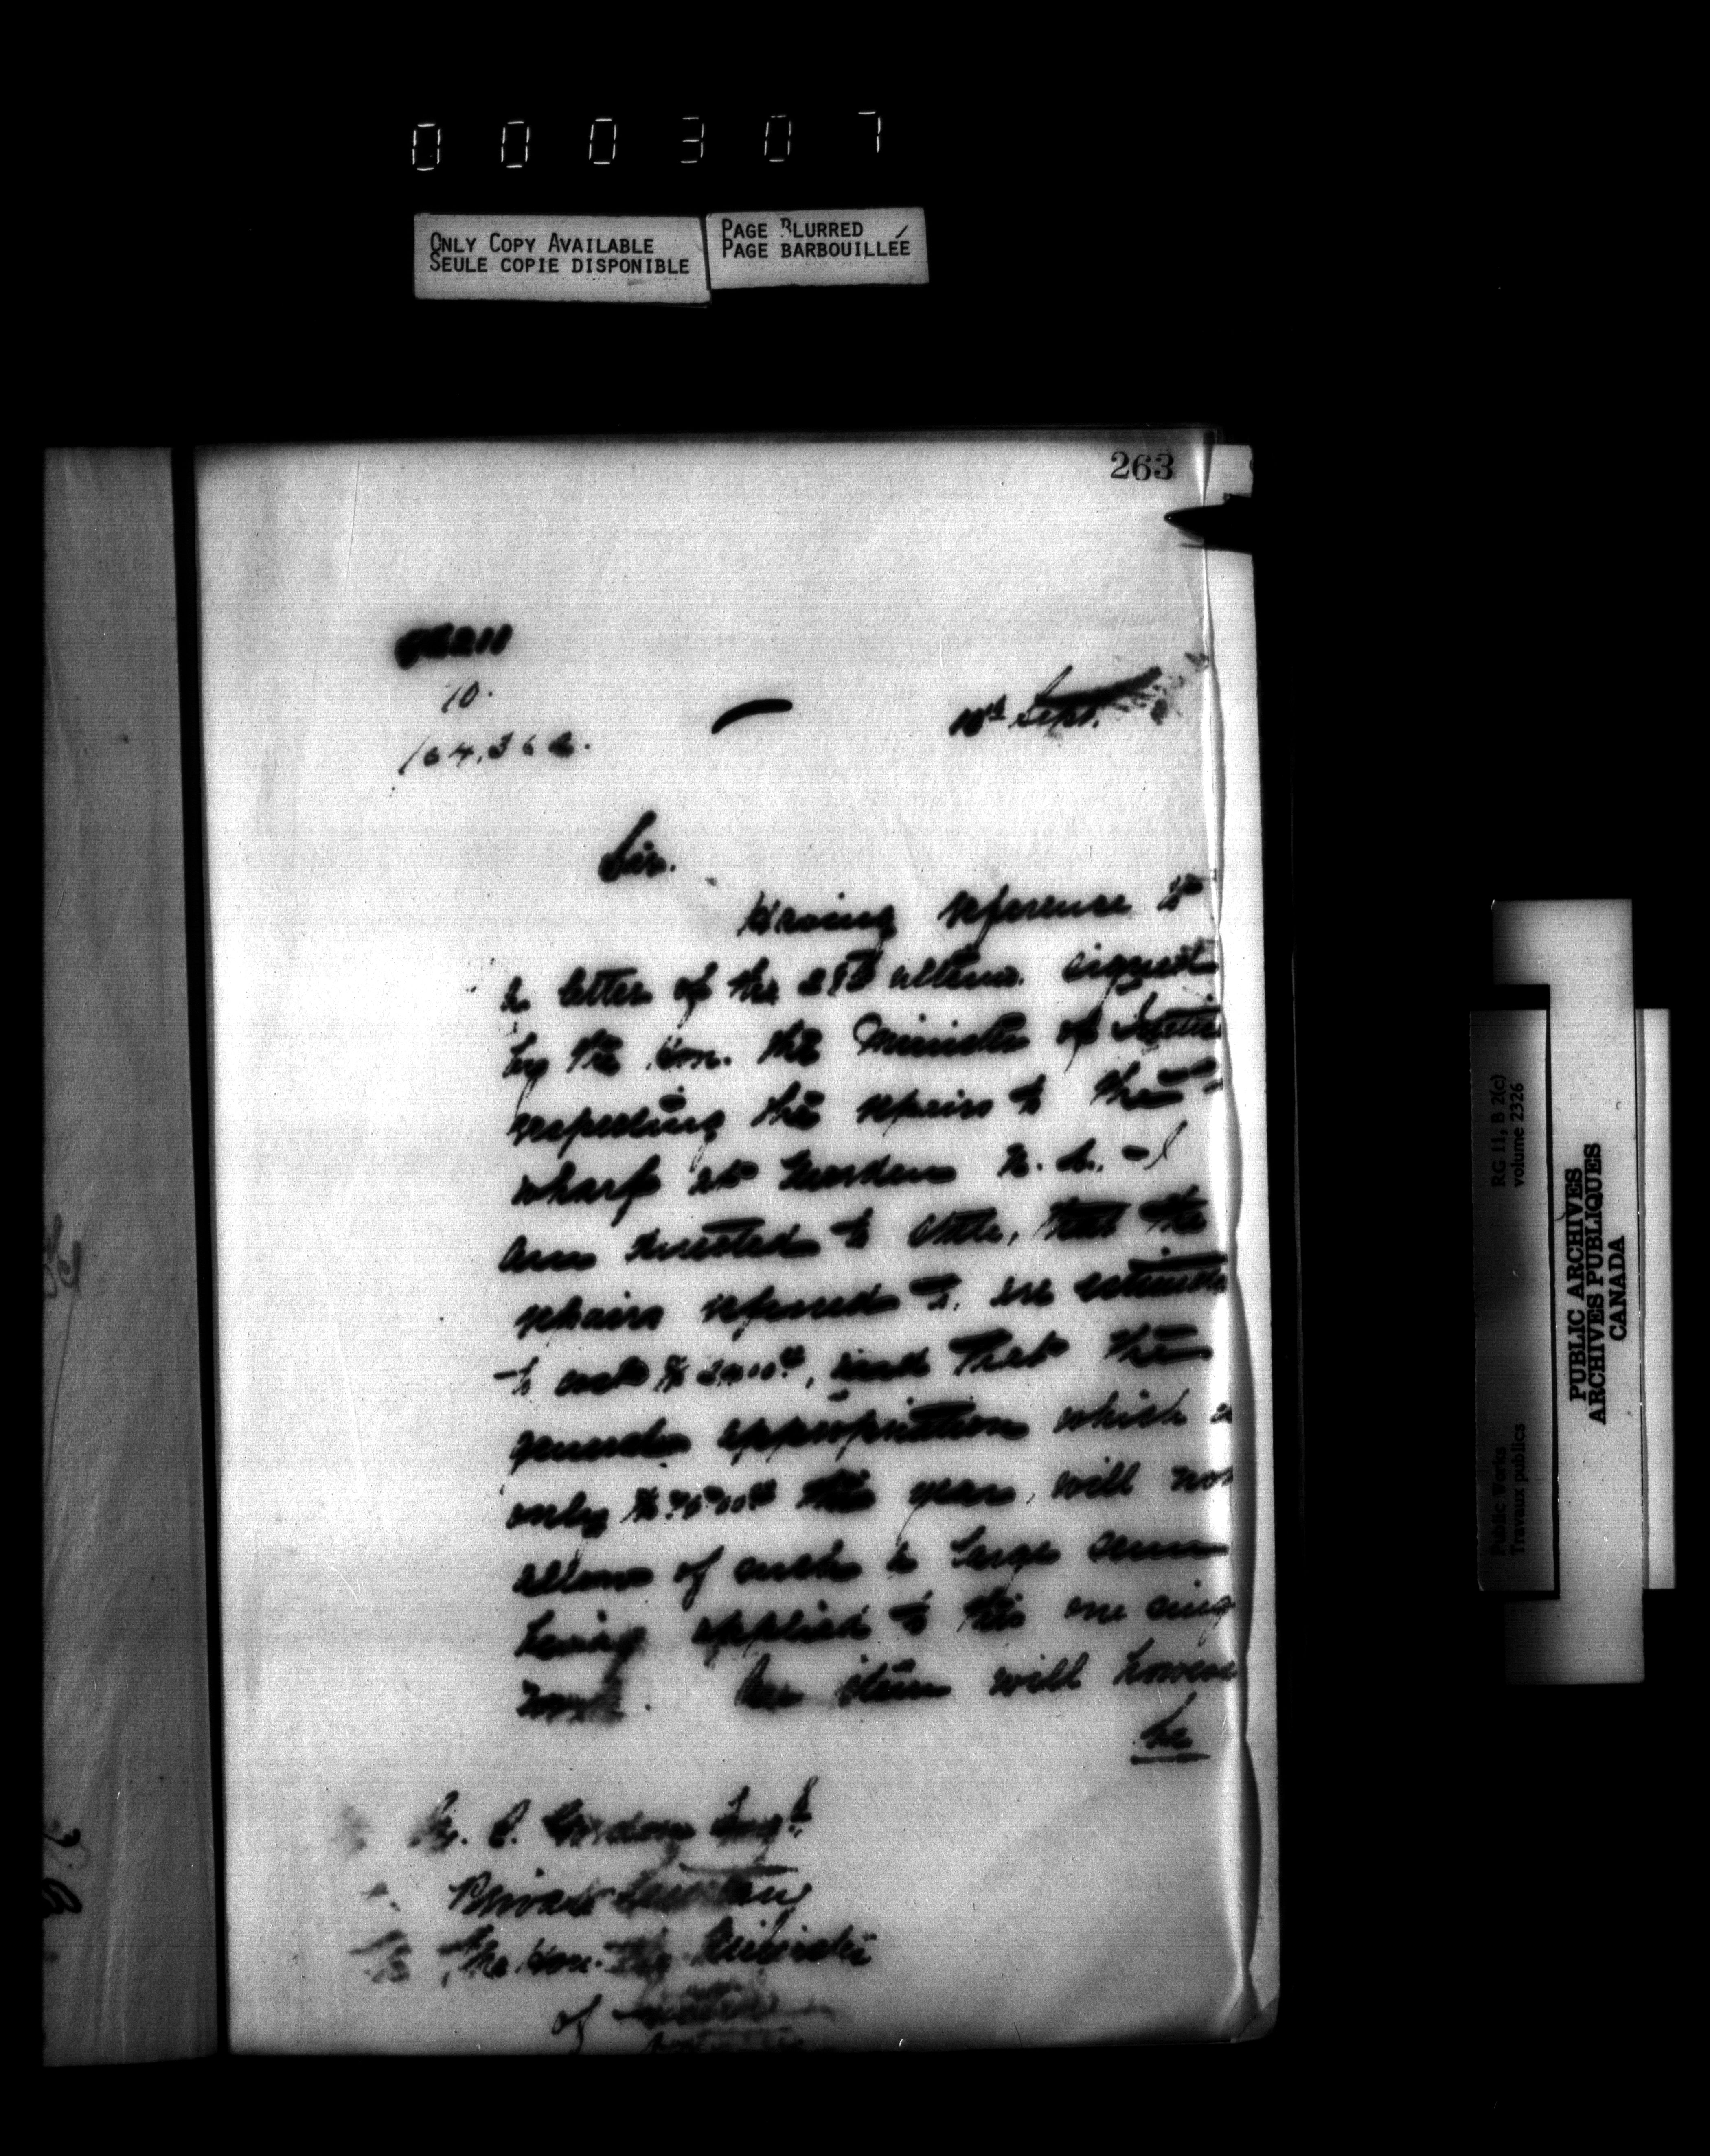 000307
ONLY COPY AVAILABLE
SEULE COPIE DISPONIBLE
PAGE BLURRED
PAGE BARBOUILLÉE
263
10.
10th Sept.
Sir.
Having reference to
a letter of the ultimo signed
by the Hon. the Minister of
respecting the repairs to the
wharf at
am directed to state, that the
repairs referred to, are estimated
to cost and that the
general appropriation which is
only this year, will not
allow of such a large sum
being applied to this one
work. An item will however
be
Gordon Esqr.
Private Secretary
To The Hon. The Minister
of
RG 11, B 2(c)
volume 2326
Public Works
Travaux publics
PUBLIC ARCHIVES
ARCHIVES PUBLIQUES
CANADA